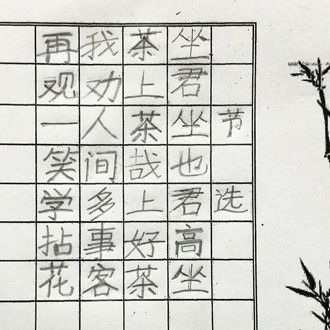 节选
坐君坐也君高坐
茶上茶哉上好茶
我劝人间多事客
再观一笑学拈花